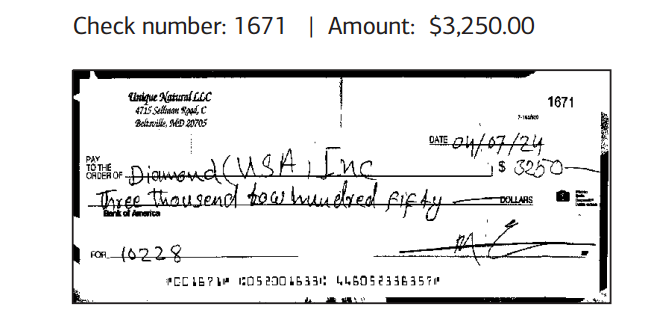 Check number: 1671 | Amount: $3,250.00
Unique Natural LLC
4715 Sellman Road, C
Beltsville, MD 20705
1671
DATE 04/07/24
PAY
TO THE
ORDER OF Diamond (USA) Inc $ 3250
Three thousend tow hundred fifty DOLLARS
Bank of America
FOR 10228